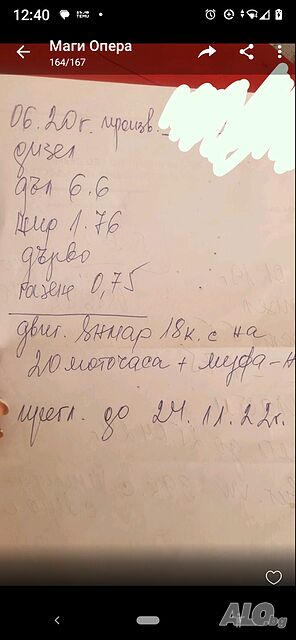 12:40
Маги Опера
164/167
06.20г. произв.
дизел
дъл 6.6
шир 1.76
дърво
газене 0,75
двиг. Янмар 18к.с на
20 моточаса + муфа - н
прегл. до 24.11.22г.
ALO.bg